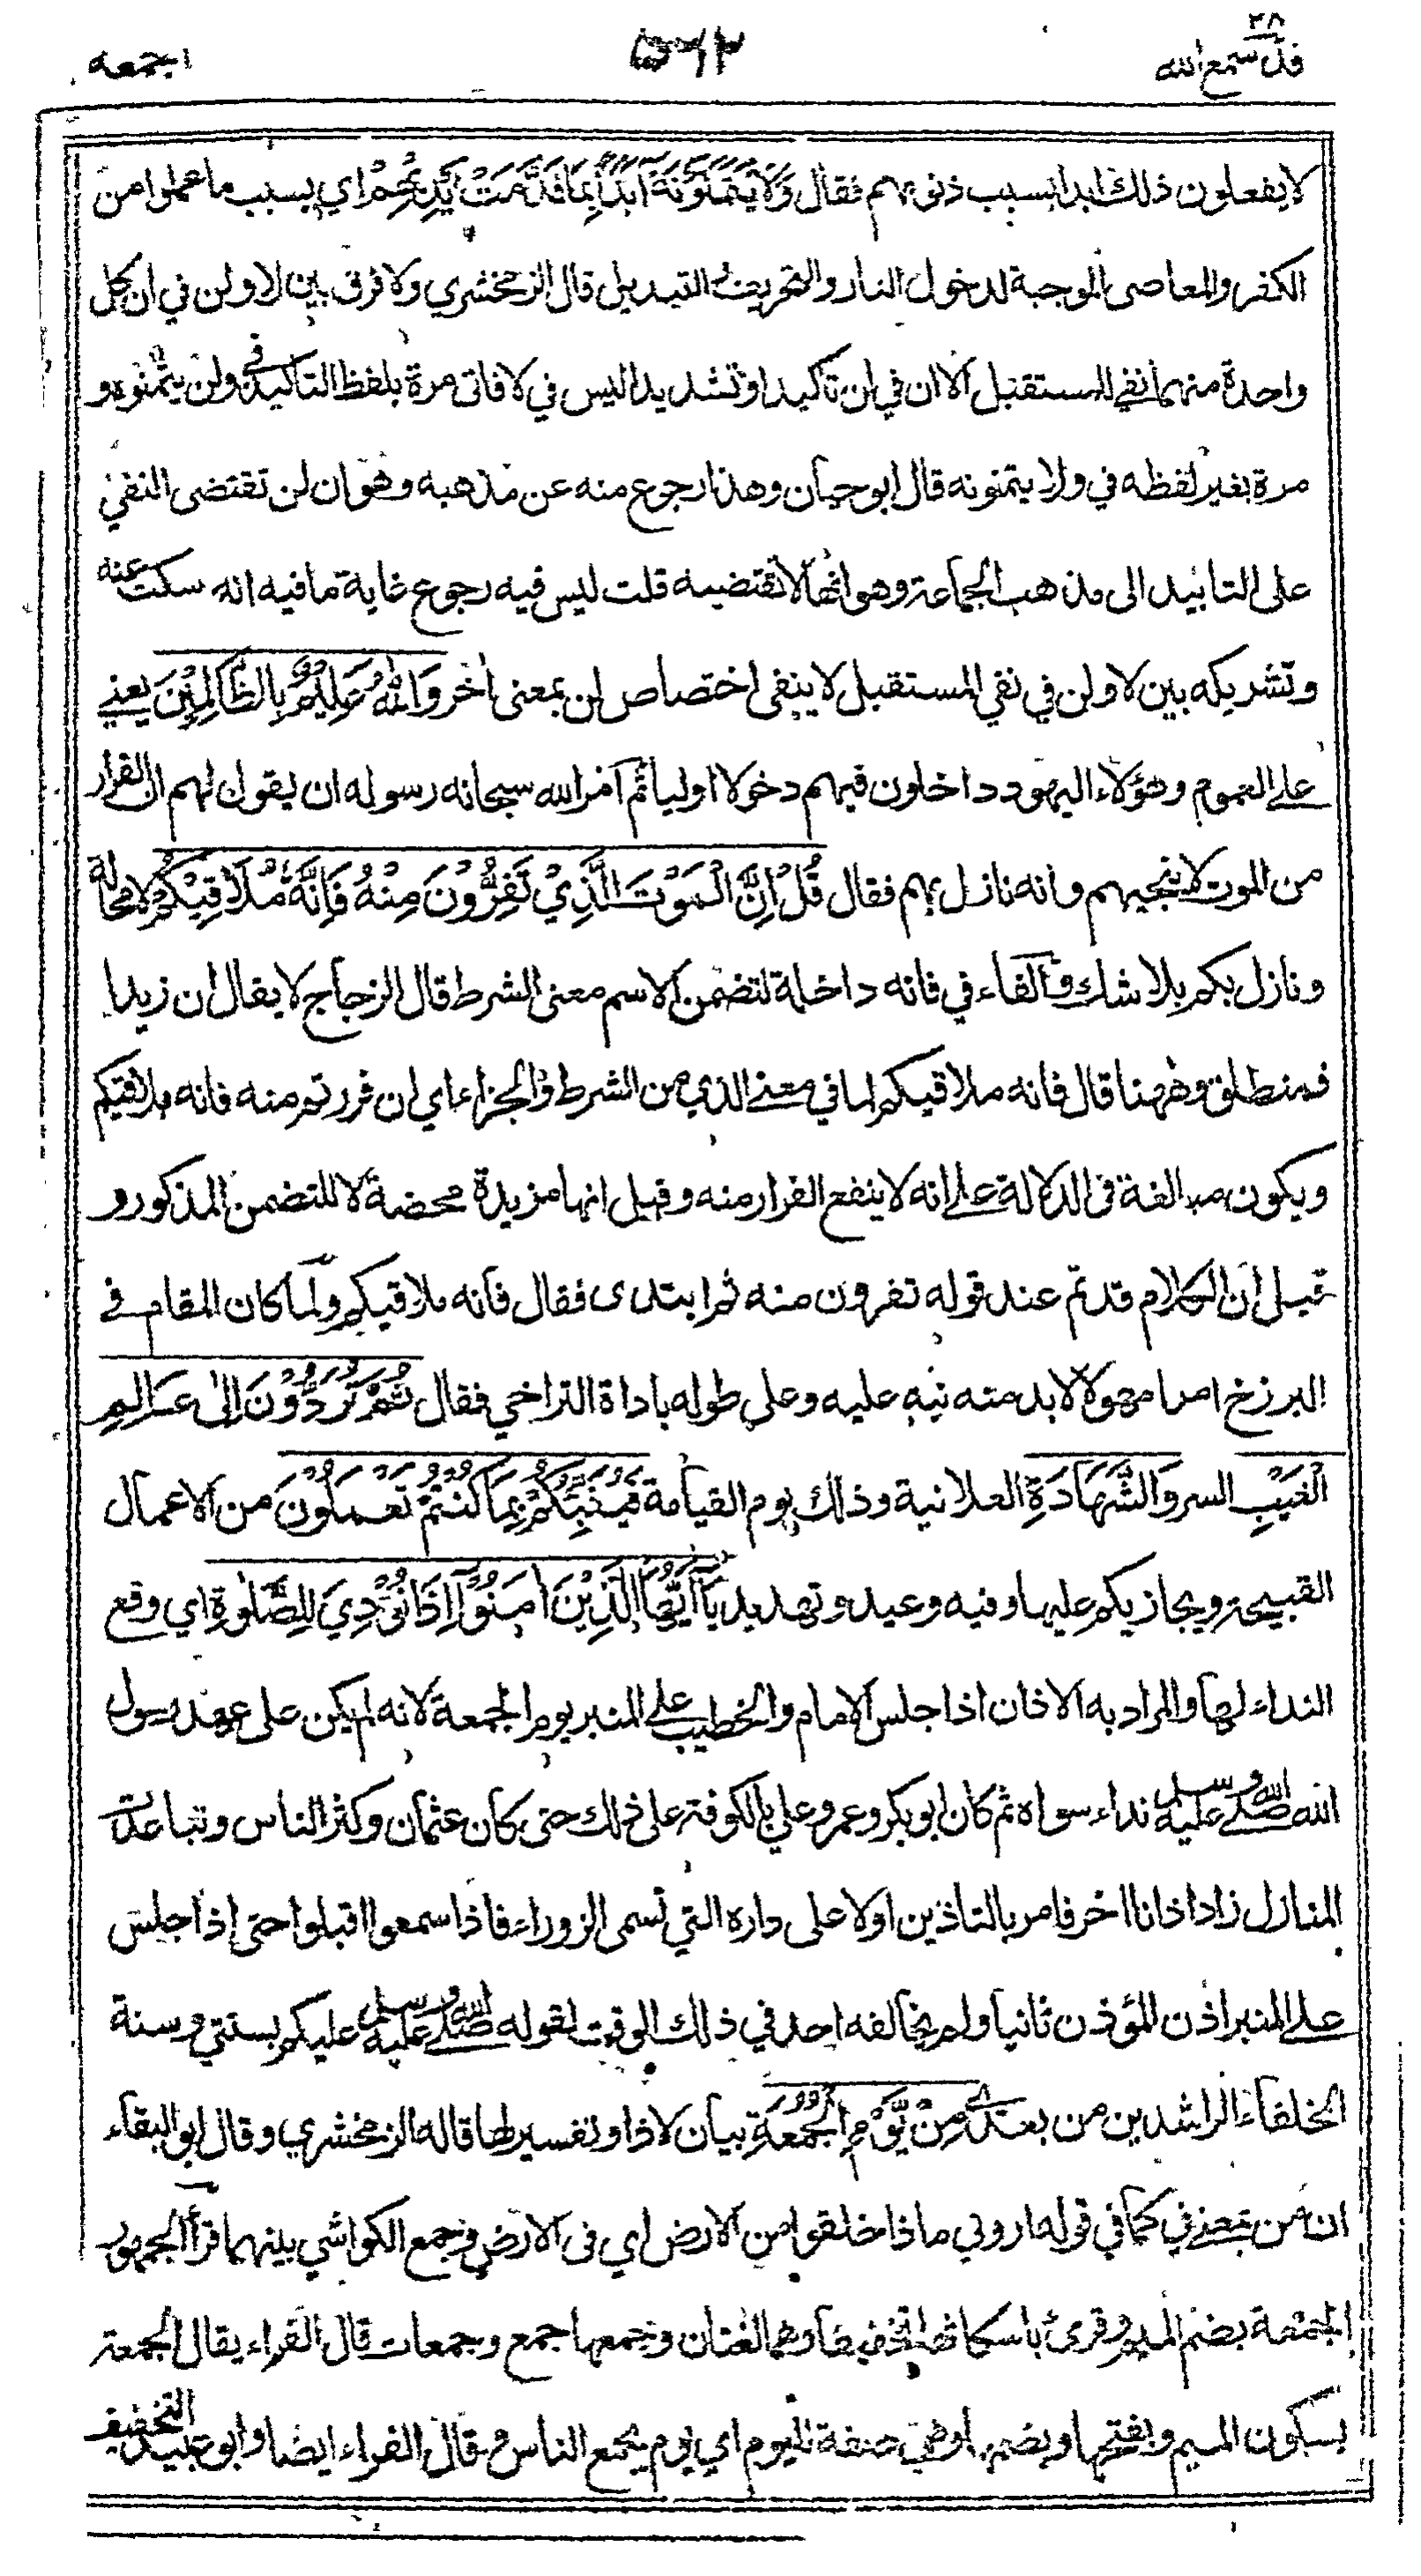 ٢٨
قد سمع الله
٥٦٢
الجمعه
لا يفعلون ذلك ابدا بسبب ذنوبهم فقال وَلَا يَتَمَنَّوْنَهُ اَبَدًا بِمَا قَدَّمَتْ اَيْدِيْهِمْ اي بسبب ما عملوا من
الكفر والمعاصي الموجبة لدخول النار والتحريف والتبديل قال الزمخشري ولا فرق بين لا ولن في ان كل
واحدة منهما نفي للمستقبل الا ان في لن تاكيدا وتشديدا ليس في لا فاتى مرة بلفظ التاكيد في ولن يتمنوه و
مرة بغير لفظه في ولا يتمنونه قال ابو حيان وهذا رجوع منه عن مذهبه وهو ان لن تقتضي النفي
على التابيد الى مذهب الجماعة وهو انها لا تقتضيه قلت ليس فيه رجوع غاية ما فيه انه سكت عنه
وتشريكه بين لا ولن في نفي المستقبل لا ينفي اختصاص لن بمعنى اخر وَاللّٰهُ عَلِيْمٌ بِالظَّالِمِيْنَ يعني
على العموم وهؤلاء اليهود داخلون فيهم دخولا اوليا ثم امر الله سبحانه رسوله ان يقول لهم ان الفرار
من الموت لا ينجيهم وانه نازل بهم فقال قُلْ اِنَّ الْمَوْتَ الَّذِيْ تَفِرُّوْنَ مِنْهُ فَاِنَّهُ مُلَاقِيْكُمْ لا محالة
ونازل بكم بلا شك والفاء في فانه داخلة لتضمن الاسم معنى الشرط قال الزجاج لا يقال ان زيدا
فمنطلق وههنا قال فانه ملاقيكم لما في معنى الذي من الشرط والجزاء اي ان فررتم منه فانه ملاقيكم
ويكون مبالغة في الدلالة على انه لا ينفع الفرار منه وقيل انها مزيدة محضة لا للتضمن المذكور و
قيل ان الكلام قد تم عند قوله تفرون منه ثم ابتدى فقال فانه ملاقيكم ولما كان المقام في
البرزخ امرا مهولا لابد منه نبه عليه وعلى طوله باداة التراخي فقال ثُمَّ تُرَدُّوْنَ اِلٰى عَالِمِ
الْغَيْبِ السر وَالشَّهَادَةِ العلانية وذلك يوم القيامة فَيُنَبِّئُكُمْ بِمَا كُنْتُمْ تَعْمَلُوْنَ من الاعمال
القبيحة ويجازيكم عليها وفيه وعيد وتهديد يَا اَيُّهَا الَّذِيْنَ اٰمَنُوْا اِذَا نُوْدِيَ لِلصَّلٰوةِ اي وقع
النداء لها والمراد به الاذان اذا جلس الامام والخطيب على المنبر يوم الجمعة لانه لم يكن على عهد رسول
الله صلى الله عليه وسلم نداء سواه ثم كان ابو بكر وعمر وعلي بالكوفة على ذلك حتى كان عثمان وكثر الناس وتباعدت
المنازل زاد اذانا اخر فامر بالتاذين اولا على داره التي تسمى الزوراء فاذا سمعوا اقبلوا حتى اذا جلس
على المنبر اذن المؤذن ثانيا ولم يخالفه احد في ذلك الوقت لقوله صلى الله عليه وسلم عليكم بسنتي وسنة
الخلفاء الراشدين من بعدي مِنْ يَّوْمِ الْجُمُعَةِ بيان لاذا وتفسير لها قاله الزمخشري وقال ابو البقاء
ان من بمعنى في كما في قوله اروني ماذا خلقوا من الارض اي في الارض وجمع الكواشي بينهما قرأ الجمهور
الجمعة بضم الميم وقرئ باسكانها تخفيفا وهما لغتان وجمعها جمع وجمعات قال الفراء يقال الجمعة
بسكون الميم وبفتحها وبضمها وهي صفة لليوم اي يوم يجمع الناس وقال الفراء ايضا وابو عبيد التخفيف